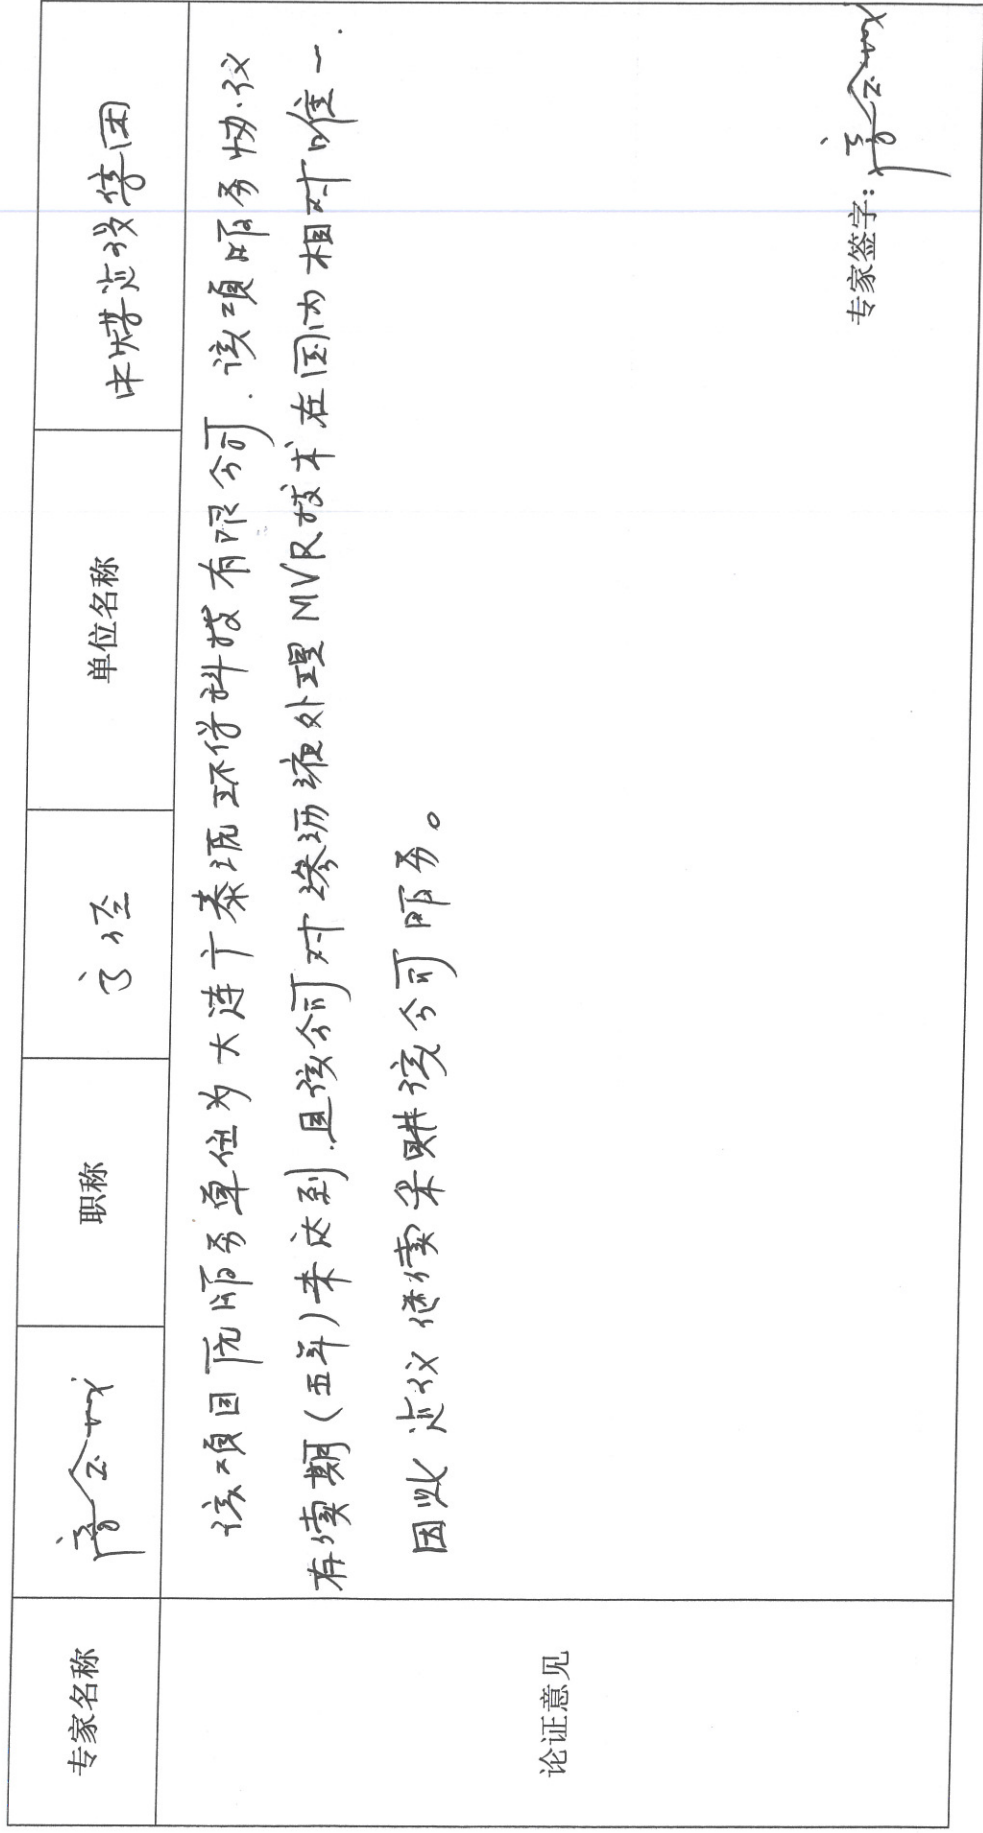 专家名称 职称 高经 单位名称 中煤建设集团
该项目原服务单位为大连广泰源环保科技有限公司.该项服务协议
存续期(五年)未达到.且该公司对渗沥液处理MVR技术在国内相对唯一.
因此建议继续采购该公司服务。
论证意见
专家签字: